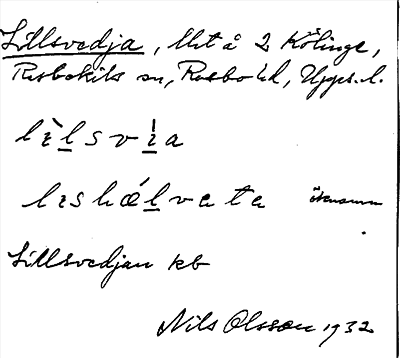 Lillsvedja, Mst å 2 Kölinge,
Rasbokils sn, Rasbo hd, Upps. l.
lìlsvia
lishælvata öknamn
Lillsvedjan kb
Nils Olsson 1932